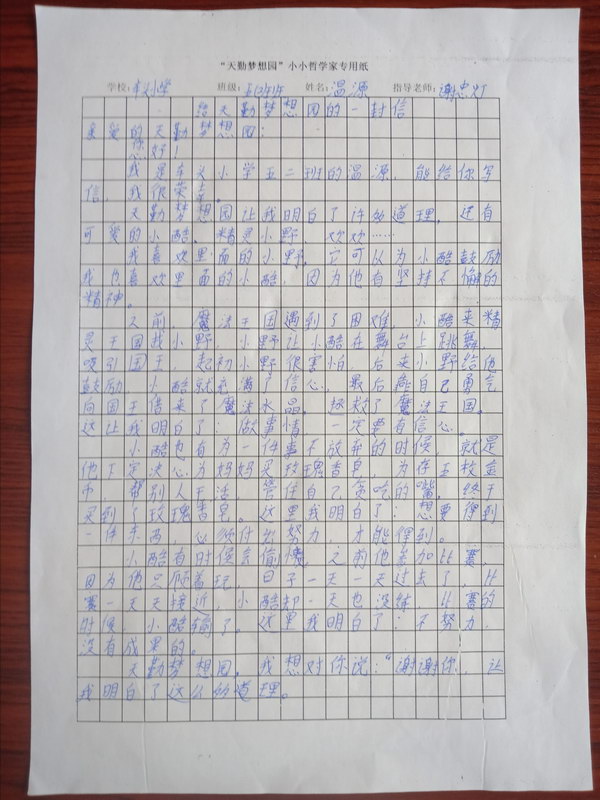 “天勤梦想园”小小哲学家专用纸
学校: 车头小学 班级: 五(2)班 姓名: 温源 指导老师: 谢忠灯
给天勤梦想园的一封信
亲爱的天勤梦想园:
你好!
我是车头小学五二班的温源,能给你写
信,我很荣幸。
天勤梦想园让我明白了许多道理,还有
可爱的小酷,精灵小野,欢欢……
我喜欢里面的小野,它可以为小酷鼓励
我也喜欢里面的小酷,因为他有坚持不懈的
精神。
之前,魔法王国遇到了困难,小酷来精
灵王国找小野,小野让小酷在舞台上跳舞,
吸引国王,起初小野很害怕,后来小野给他
鼓励,小酷就充满了信心,最后自己勇气
向国王借来了魔法水晶,拯救了魔法王国。
这让我明白了:做事情,一定要有信心。
小酷也有为一件事不放弃的时候,就是
他下定决心为好好买玫瑰香皂,为存五枚金
币,帮别人干活,管住自己贪吃的嘴,终于
买到了玫瑰香皂。这里我明白了:想要得到
一件东西,必须付出努力,才能得到。
小酷有时侯会偷懒,之前他参加比赛,
因为他只顾着玩,日子一天一天过去了,比
赛一天天接近,小酷却一天也没练,比赛的
时侯,小酷输了。这里我明白了:不努力,
没有成果的。
天勤梦想园,我想对你说:“谢谢你,让
我明白了这么多道理。